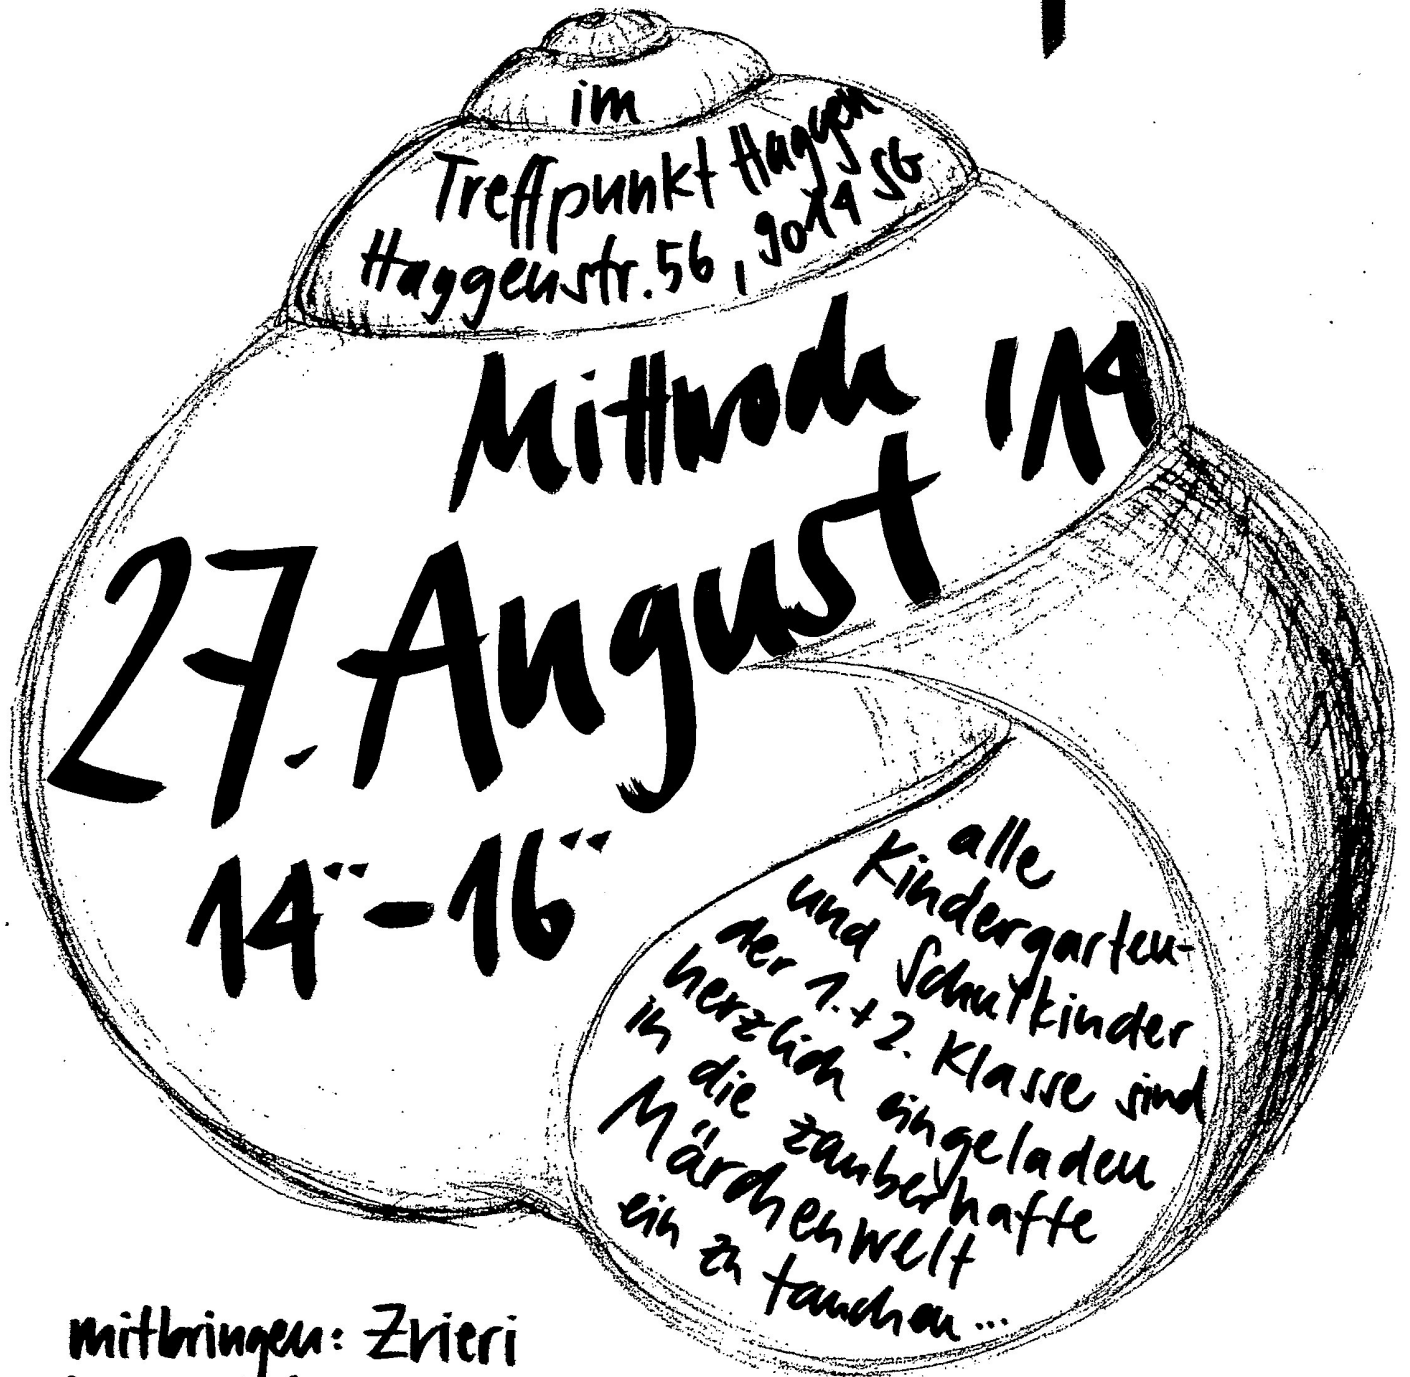 im
Treffpunkt Haggen
Haggenstr. 56, 9014 SG
Mittwoch
27. August '14
14°°-16°°
alle
Kindergarten-
und Schulkinder
der 1.+2. Klasse sind
herzlich eingeladen
in die zauberhafte
Märchenwelt
ein zu tauchen...
mitbringen: Zvieri